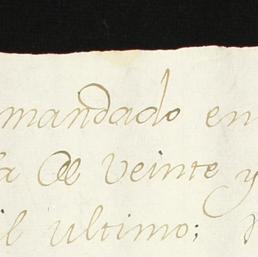 mandado en
la de Veinte y
il ultimo;